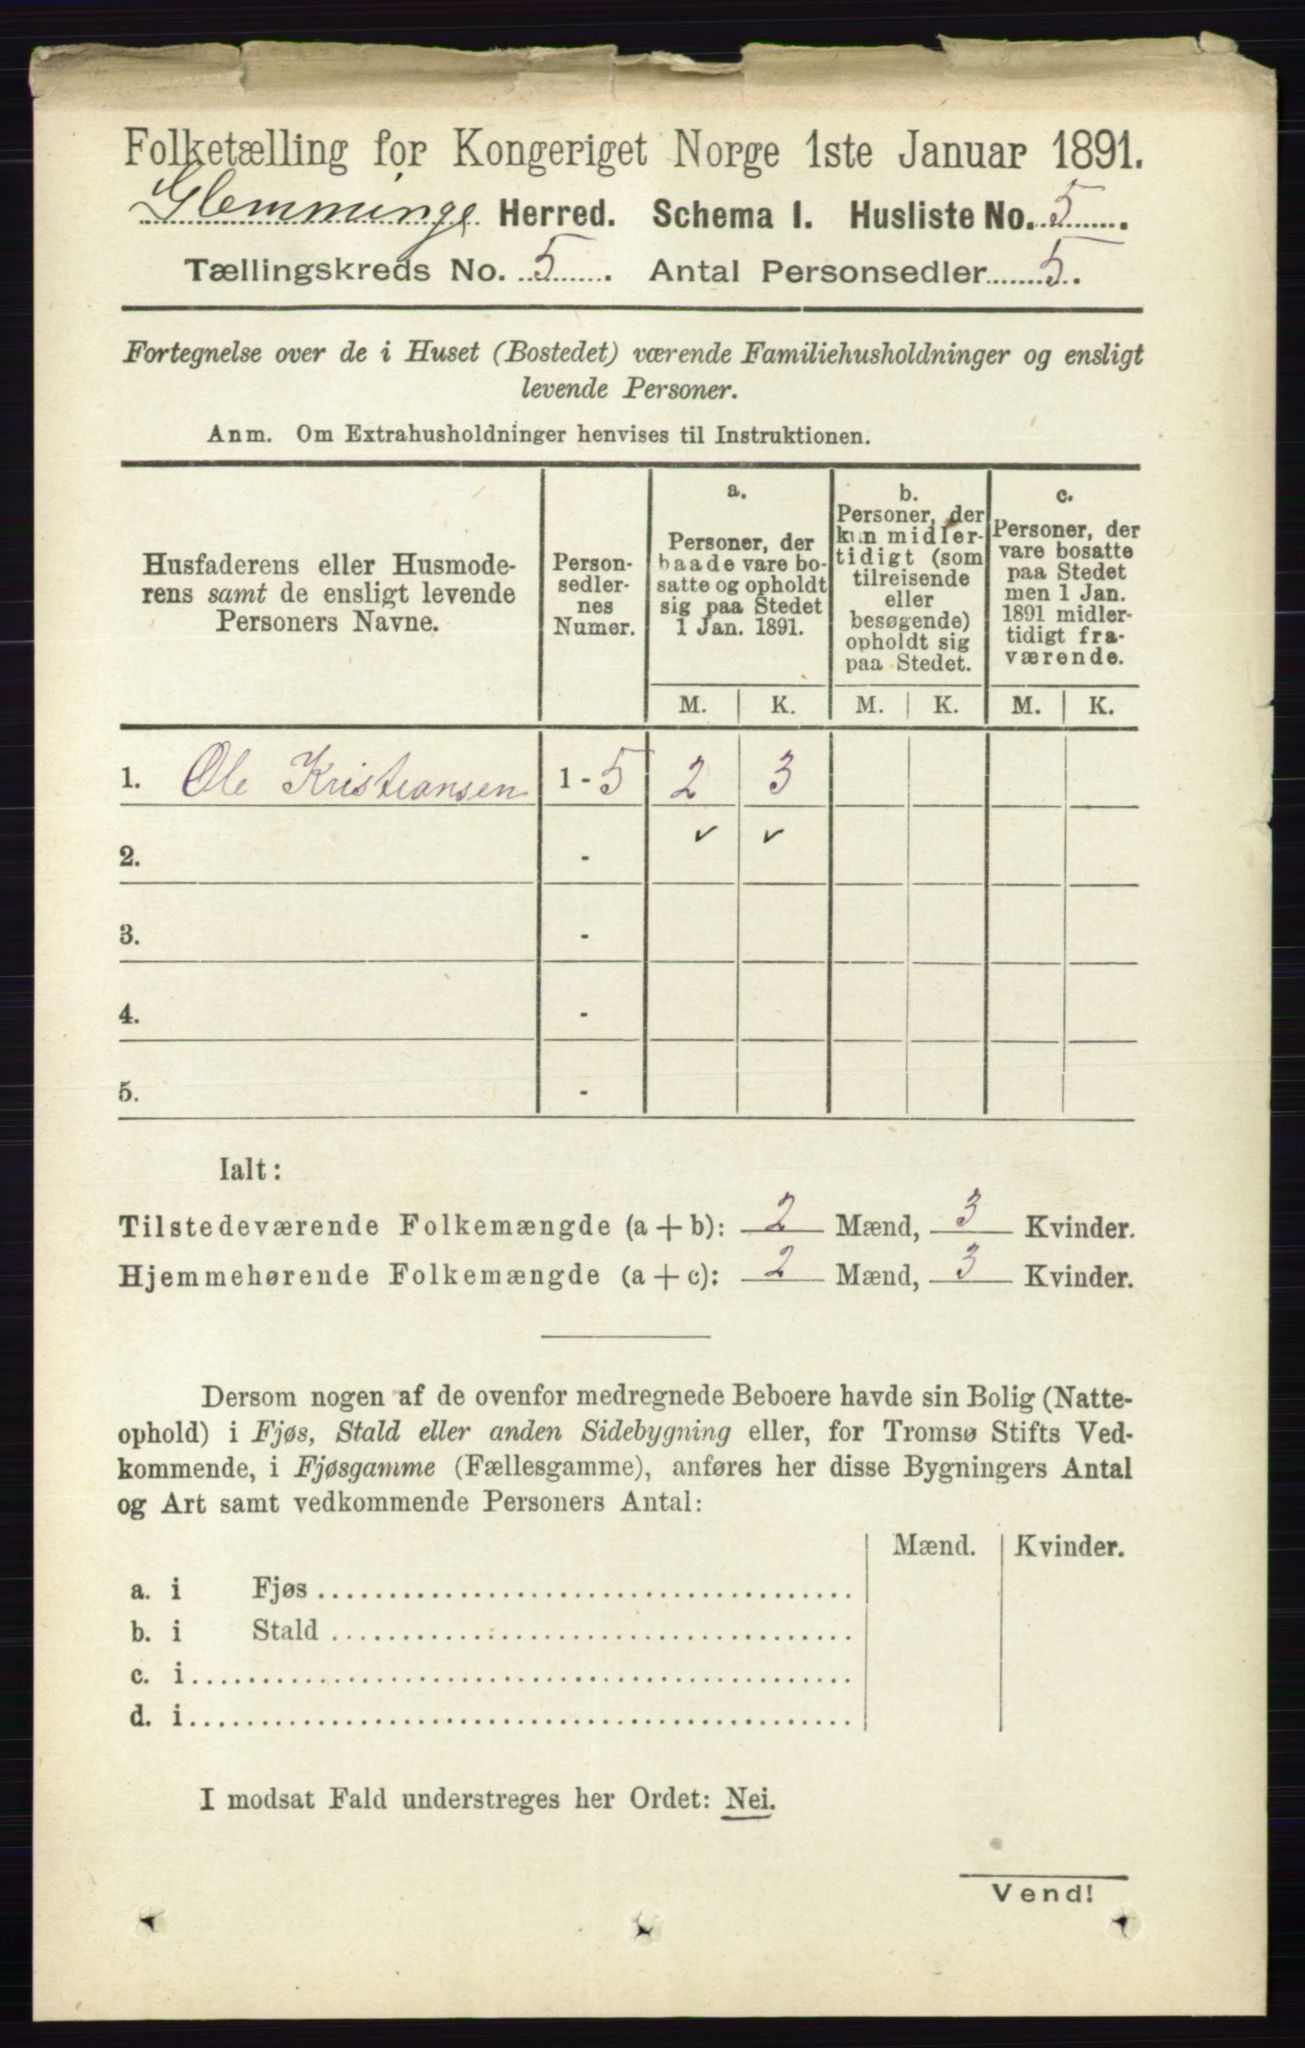 Folketælling for Kongeriget Norge 1ste Januar 1891.
Glemminge Herred. Schema I. Husliste No. 5.
Tællingskreds No. 5. Antal Personsedler 5.
Fortegnelse over de i Huset (Bostedet) værende Familiehusholdninger og ensligt
levende Personer.
Anm. Om Extrahusholdninger henvises til Instruktionen.
Husfaderens eller Husmode-
rens samt de ensligt levende
Personers Navne.
Person-
sedler-
nes
Numer.
a.
Personer, der
baade vare bo-
satte og opholdt
sig paa Stedet
1 Jan. 1891.
b.
Personer, der
kun midler-
tidigt (som
tilreisende
eller
besøgende)
opholdt sig
paa Stedet.
c.
Personer, der
vare bosatte
paa Stedet
men 1 Jan.
1891 midler-
tidigt fra-
værende.
M. K. M. K. M. K.
1. Ole Kristiansen 1 - 5 2 3
2. - ✓ ✓
3. -
4. -
5. -
Ialt:
Tilstedeværende Folkemængde (a + b): 2 Mænd, 3 Kvinder.
Hjemmehørende Folkemængde (a + c): 2 Mænd, 3 Kvinder.
Dersom nogen af de ovenfor medregnede Beboere havde sin Bolig (Natte-
ophold) i Fjøs, Stald eller anden Sidebygning eller, for Tromsø Stifts Ved-
kommende, i Fjøsgamme (Fællesgamme), anføres her disse Bygningers Antal
og Art samt vedkommende Personers Antal:
Mænd. Kvinder.
a. i Fjøs
b. i Stald
c. i
d. i
I modsat Fald understreges her Ordet: Nei.
Vend!